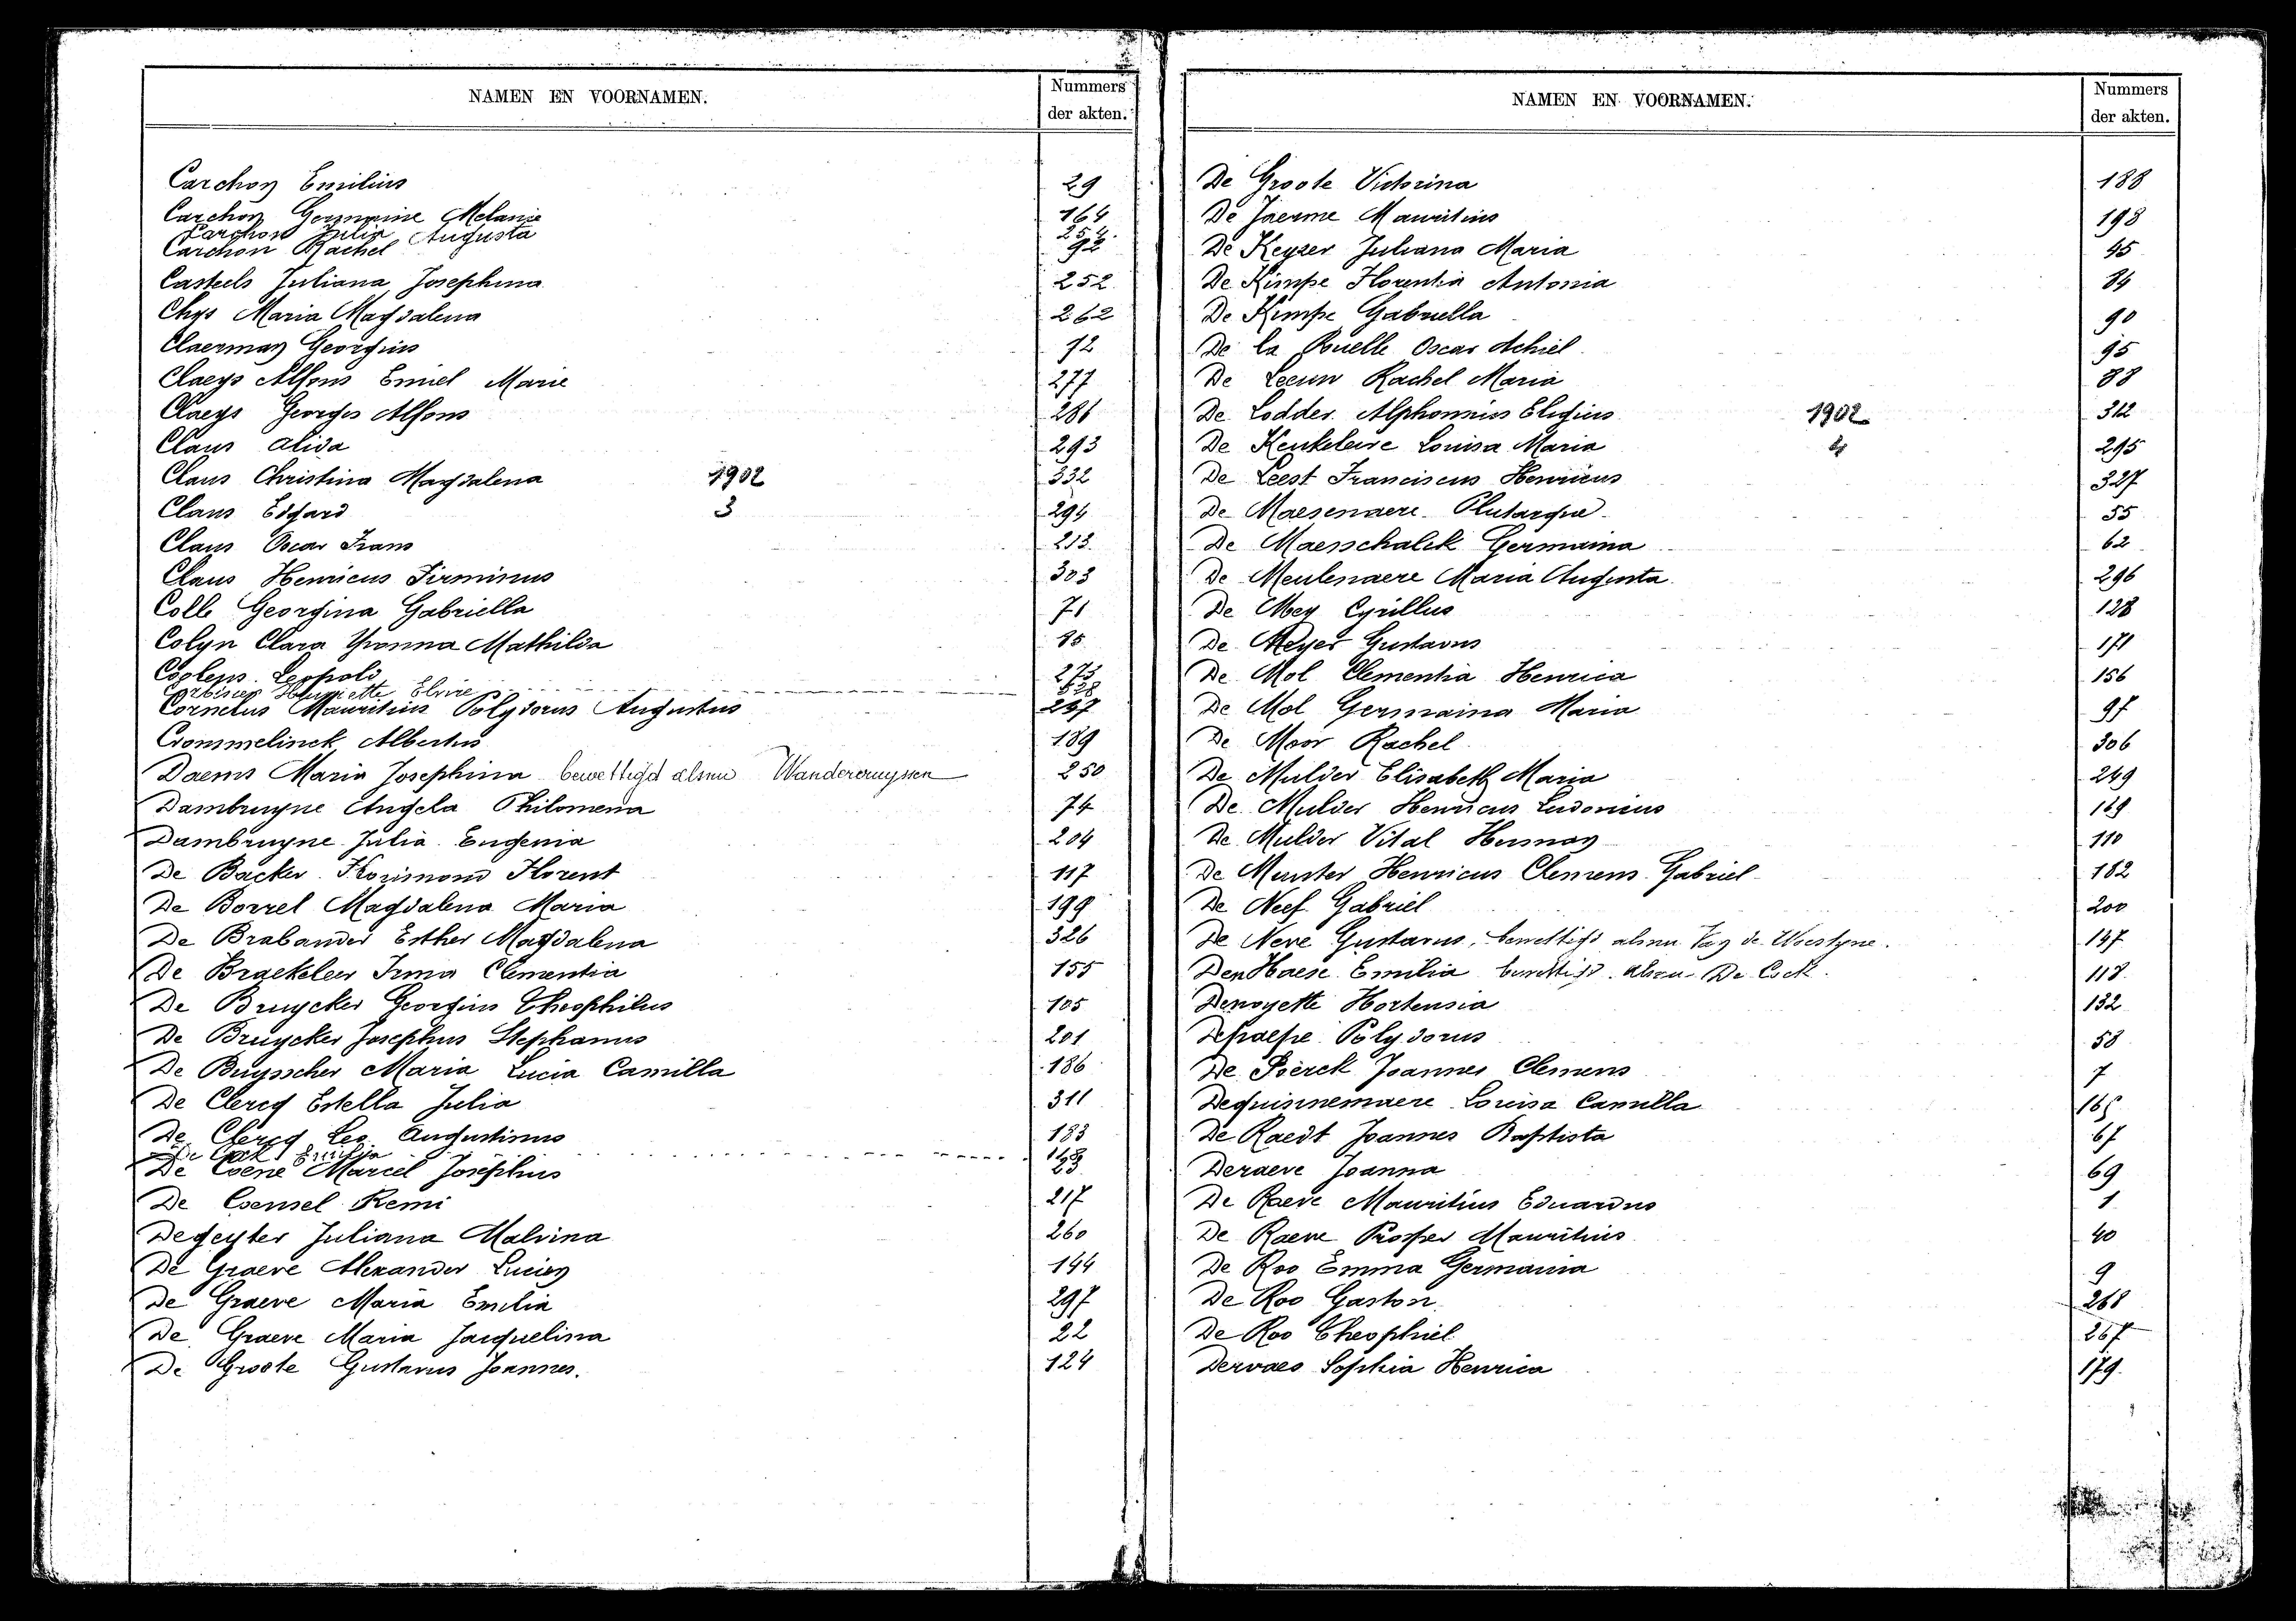 NAMEN EN VOORNAMEN.
Nummers
der akten.
Carchon Emilius 29
Carchon Germaine Melanie 164
Carchon Julia Augusta 254.
Carchon Rachel 92
Casteels Juliana Josephina 252
Chys Maria Magdalena 262
Claerman Georgius 12
Claeys Alfons Emiel Marie 277
Claeys Georges Alfons 286
Claus Alida 293
Claus Christina Magdalena 1902 332
Claus Edgard 3 294
Claus Oscar Frans 213
Claus Henricus Firminus 303
Colle Georgina Gabriella 71
Colyn Clara Yvonna Mathilda 15
Coolens Leopold 273
Henriette Elvire 328
Cornelus Mauritius Polydorus Augustus 257
Crommelinck Albertus 189
Daems Maria Josephina bewettigd alsnu Wandercruyssen 250
Dambruyne Angela Philomena 74
Dambruyne Julia Eugenia 204
De Backer Florimond Florent 117
De Borrel Magdalena Maria 199
De Brabander Esther Magdalena 326
De Braekeleer Irma Clementia 155
De Bruycker Georgius Theophilus 105
De Bruycker Josephus Stephanus 201
De Buysscher Maria Lucia Camilla 186
De Clercq Estella Julia 311
De Clercq Leo Augustinus 183
De Cock Emilia 118
De Coene Marcel Josephus 23
De Coensel Remi 217
Degeyter Juliana Malvina 260
De Graeve Alexander Lucien 144
De Graeve Maria Emilia 297
De Graeve Maria Jacquelina 22
De Groote Gustavus Joannes. 124
NAMEN EN VOORNAMEN.
Nummers
der akten.
De Groote Victorina 188
De Jaerme Mauritius 198
De Keyzer Juliana Maria 45
De Kimpe Florentia Antonia 84
De Kimpe Gabriella 90
De la Ruelle Oscar Achiel 95
De Leeuw Rachel Maria 88
De Lodder Alphonsius Eligius 1902 312
De Keukeleire Louisa Maria 4 295
De Leest Franciscus Henricus 327
De Maesenaere Plutarque 55
De Maesschalck Germaina 62
De Meulenaere Maria Augusta 296
De Mey Cyrillus 128
De Meyer Gustavus 171
De Mol Clementia Henrica 156
De Mol Germaina Maria 97
De Moor Rachel 306
De Mulder Elisabeth Maria 249
De Mulder Henricus Ludovicus 129
De Mulder Vital Herman 110
De Munster Henricus Clemens Gabriel 182
De Neef Gabriel 200
De Neve Gustavus, bewettigd alsnu Van de Woestyne. 147
Den Haese Emilia bewettigd alsnu De Cock. 118
Denoyette Hortensia 132
Depaepe Polydorus 58
De Pierck Joannes Clemens 7
Dequinnemaere Louisa Camilla 165
De Raedt Joannes Baptista 67
Deraeve Joanna 69
De Raeve Mauritius Eduardus 1
De Raeve Prosper Mauritius 40
De Roo Emma Germania 9
De Roo Gaston 268
De Roo Theophiel 267
Dervaes Sophia Henrica 179